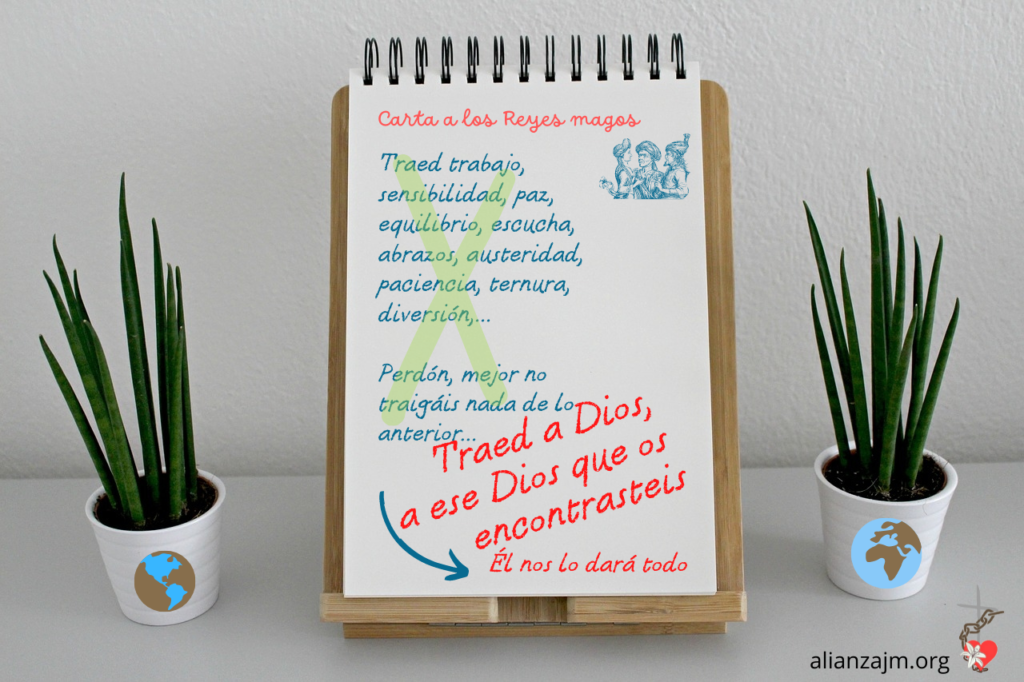 Carta a los Reyes magos
Traed trabajo,
sensibilidad, paz,
equilibrio, escucha,
abrazos, austeridad,
paciencia, ternura,
diversión,...
Perdón, mejor no
traigáis nada de lo
anterior...
Traed a Dios,
a ese Dios que os
encontrasteis
Él nos lo dará todo
alianzajm.org